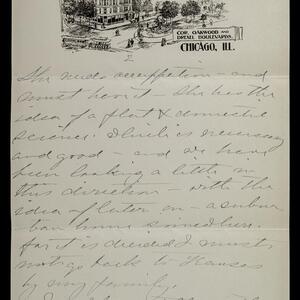 COR. OAKWOOD AND
DREXEL BOULEVARDS.
CHICAGO, ILL.
2
She needs occupation - and
must have it - She has the
idea of a flat & domestic
science. Which is necessary
and good - and we have
been looking a little in
this direction - with the
idea of later on - a subur-
ban home somewhere.
for it is decided I must
not go back to Kansas
by my family.